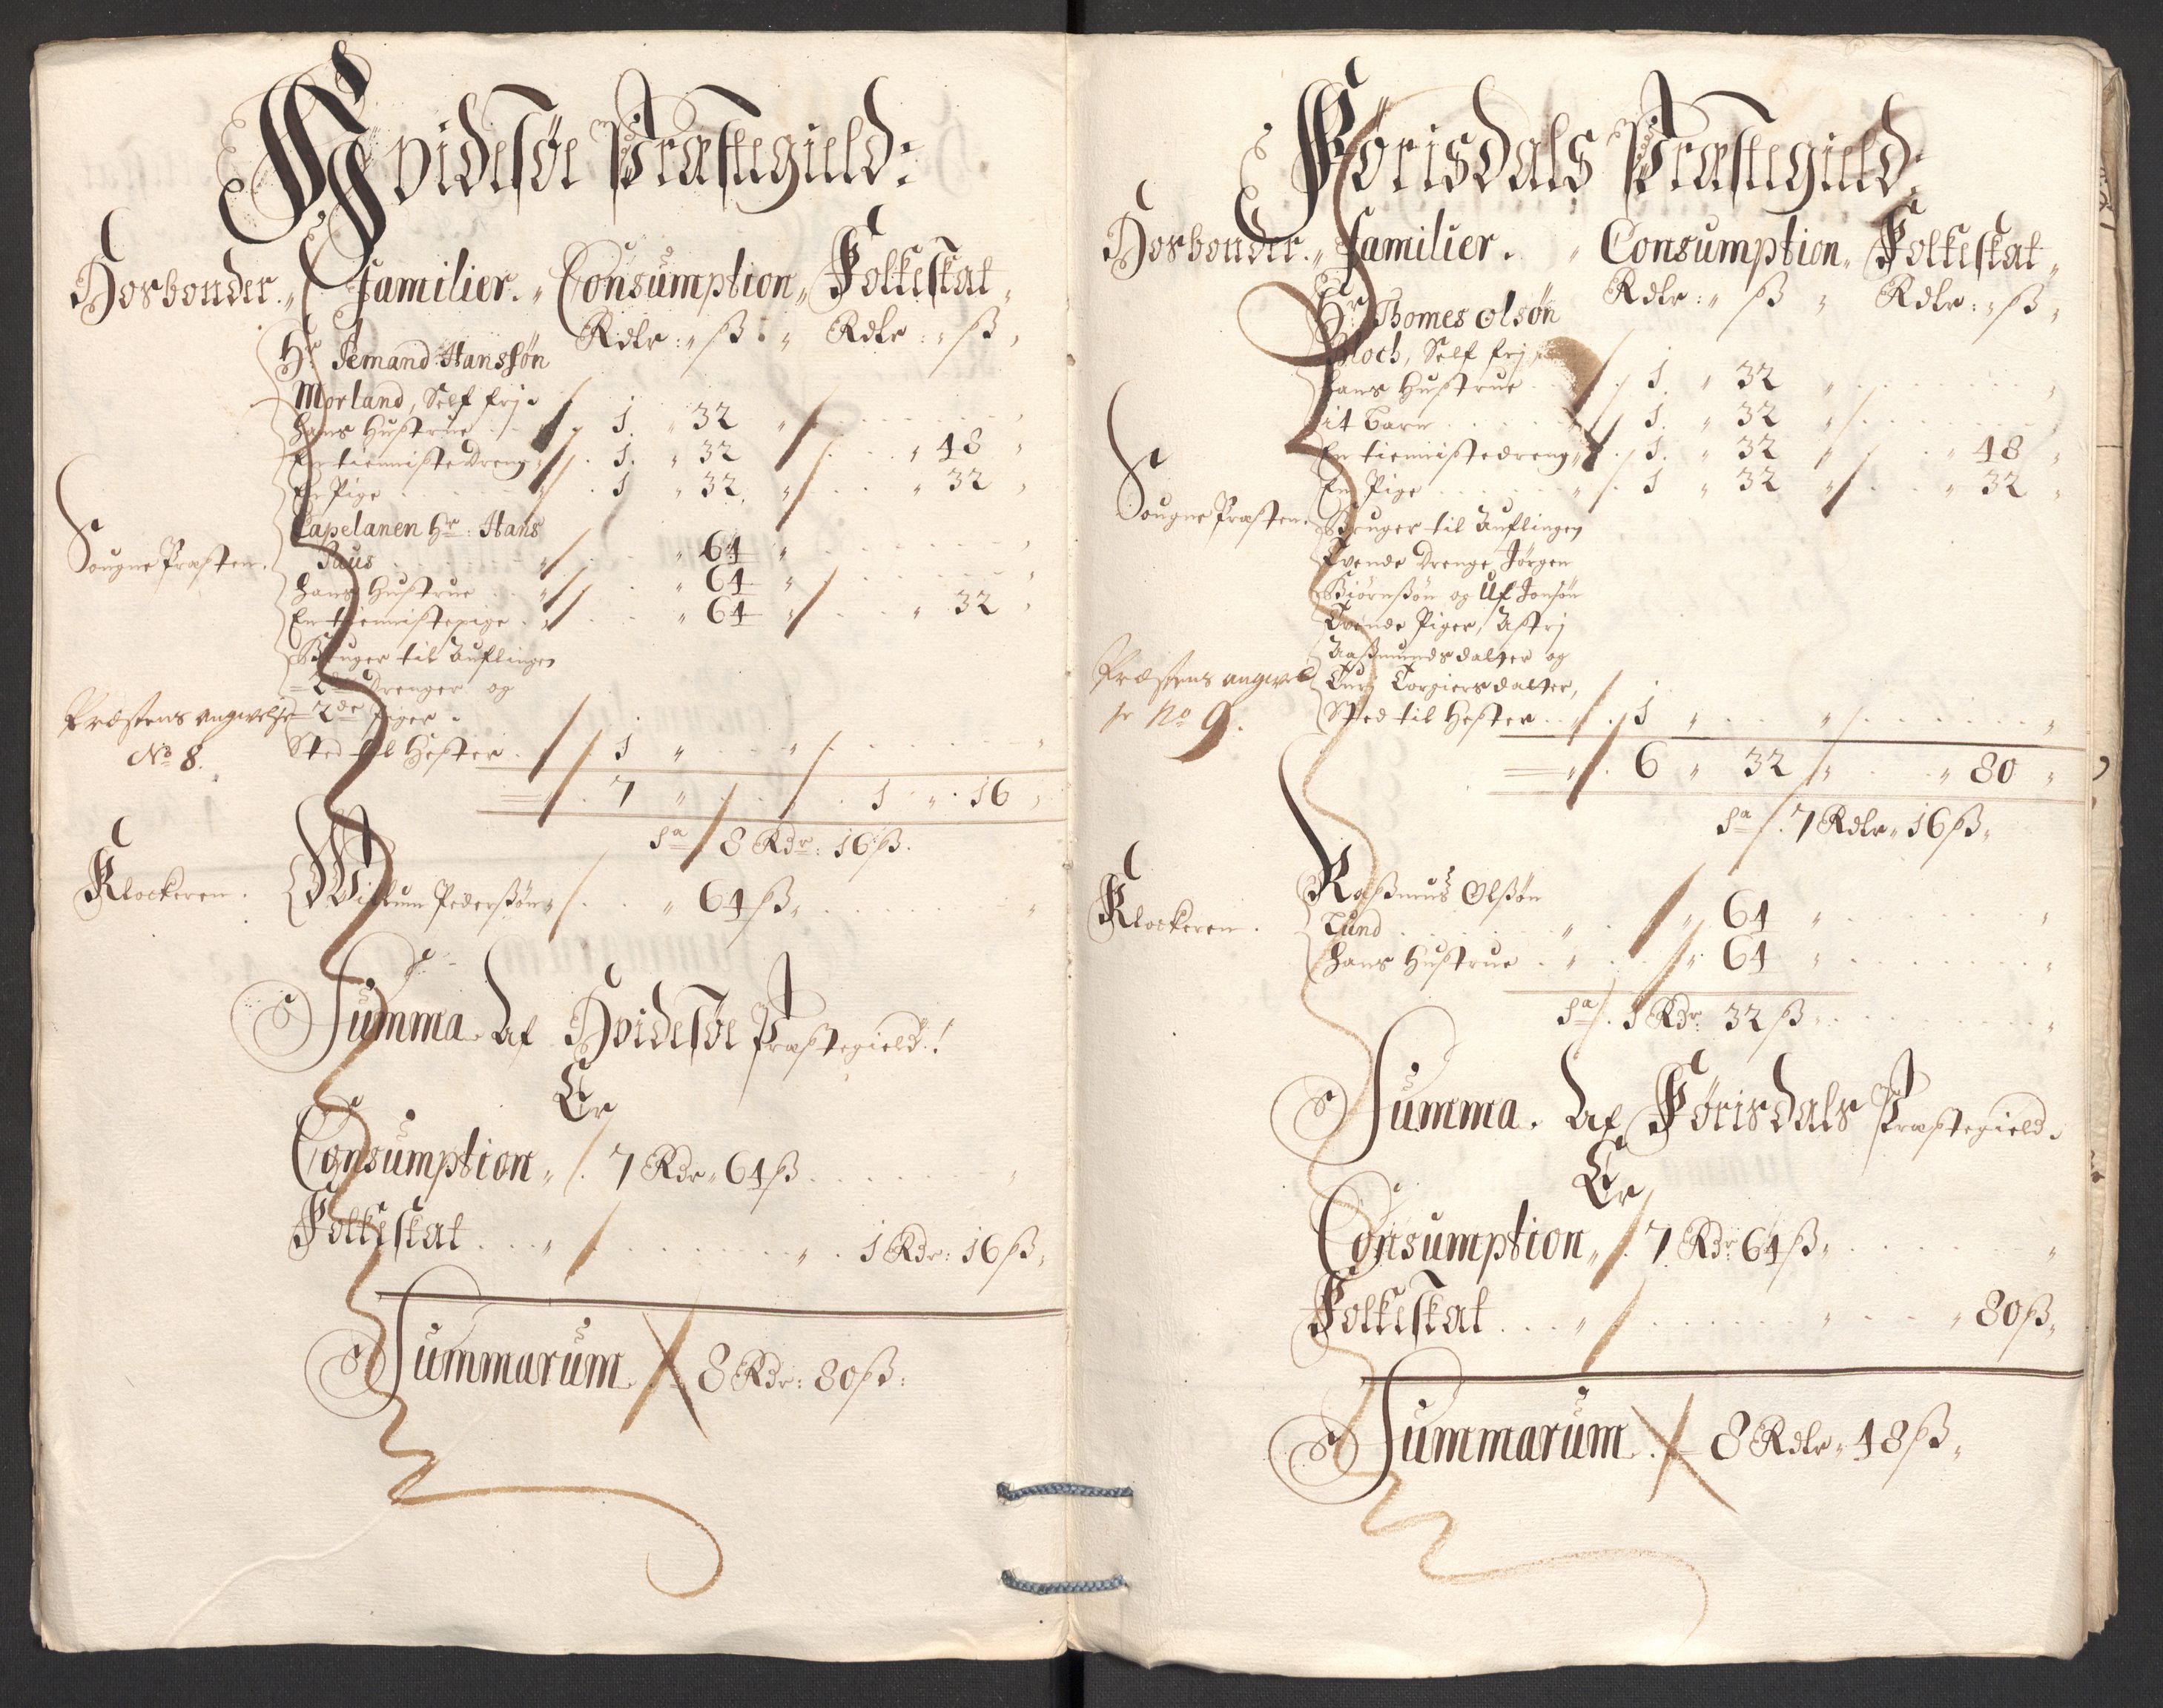 Hvidesøe Præstegield:
Hosbonder. Familier. Consumption Folkeskat
Rdlr: ß Rdlr: ß
Hr Jemand Hanssøn
Morland, Self frj.
hans Hustrue 1. 32
En tienniste Dreng 1. 32 48
En Pige 1 32 32
Sougne Præsten.
Capelanen Hr: Hans
Paus 64
hans Hustrue 64
En tiennistepige 64 32
Bruger til Auflingen
2de Drenger og
2de Piger.
Præstens angivelse
No 8.
Sted til Hester 1
7 1 16
Sa 8 Rdr: 16 ß.
Klockeren. Willum Pederßøn 64 ß
Summa Af Hvidesøe Præstegield.
Er
Consumption 7 Rdr 64 ß
Folkeskat 1 Rdr: 16 ß
Summarum 8 Rdr: 80 ß:
Førisdals Præstegield:
Hosbonder. Familier. Consumption Folkeskat
Rdlr: ß Rdlr: ß
Hr Thomes Olsøn
Bloch, Self frj
hans Hustrue 1. 32
it barn 1. 32
En tiennistedreng 1. 32 48
En Pige 1 32 32
Sougne Præsten.
Bruger til Auflingen
Tvende Drenge Jørgen
Biørnßøn og Ulf Jonsøn
Tvende Piger, Astrj
Aaßmundsdalter og
Turj Torgiersdalter,
Præstens angivel
sr No 9.
Sted til Hester 1
6 32 80
Sa 7 Rdlr 16 ß
Klockeren.
Raßmus Olßøn
Lund 64
hans Hustrue 64
Sa 1 Rdr 32 ß
Summa. Af Førisdals Præstegield.
Er
Consumption 7 Rdr 64 ß
Folkeskat 80 ß
Summarum 8 Rdlr 48 ß